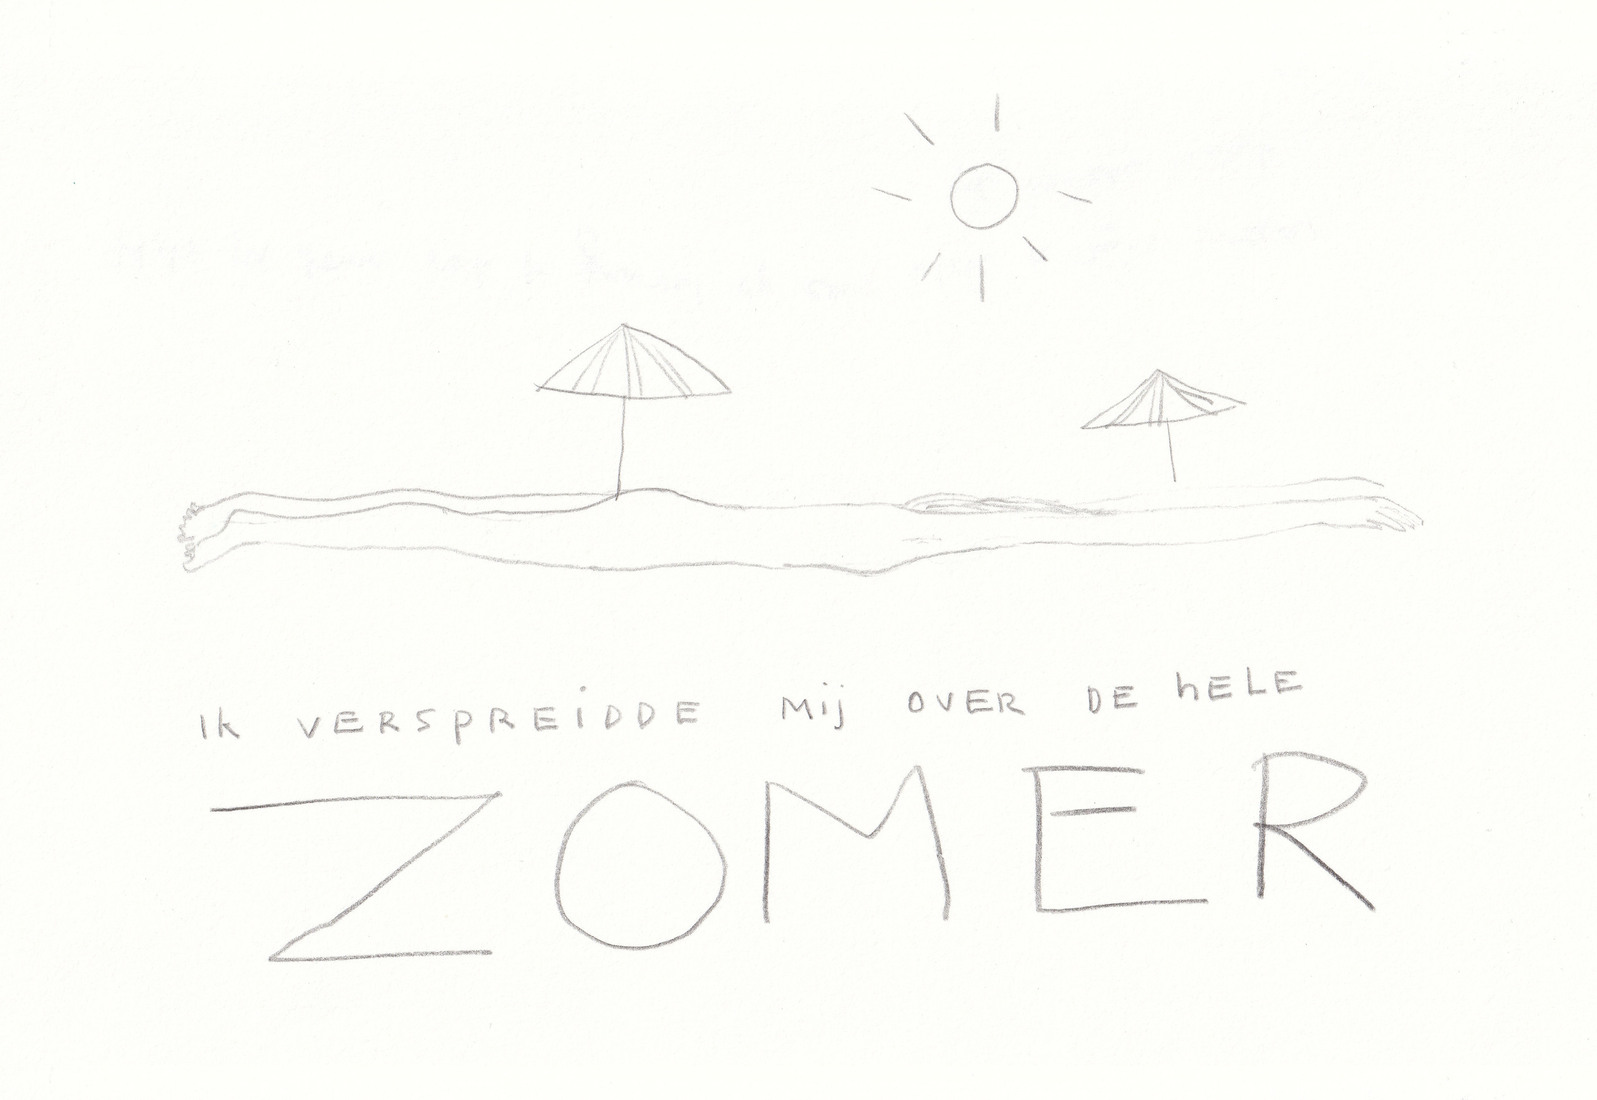 Ik VERSPREiDDE Mij OVER DE hELE
ZOMER